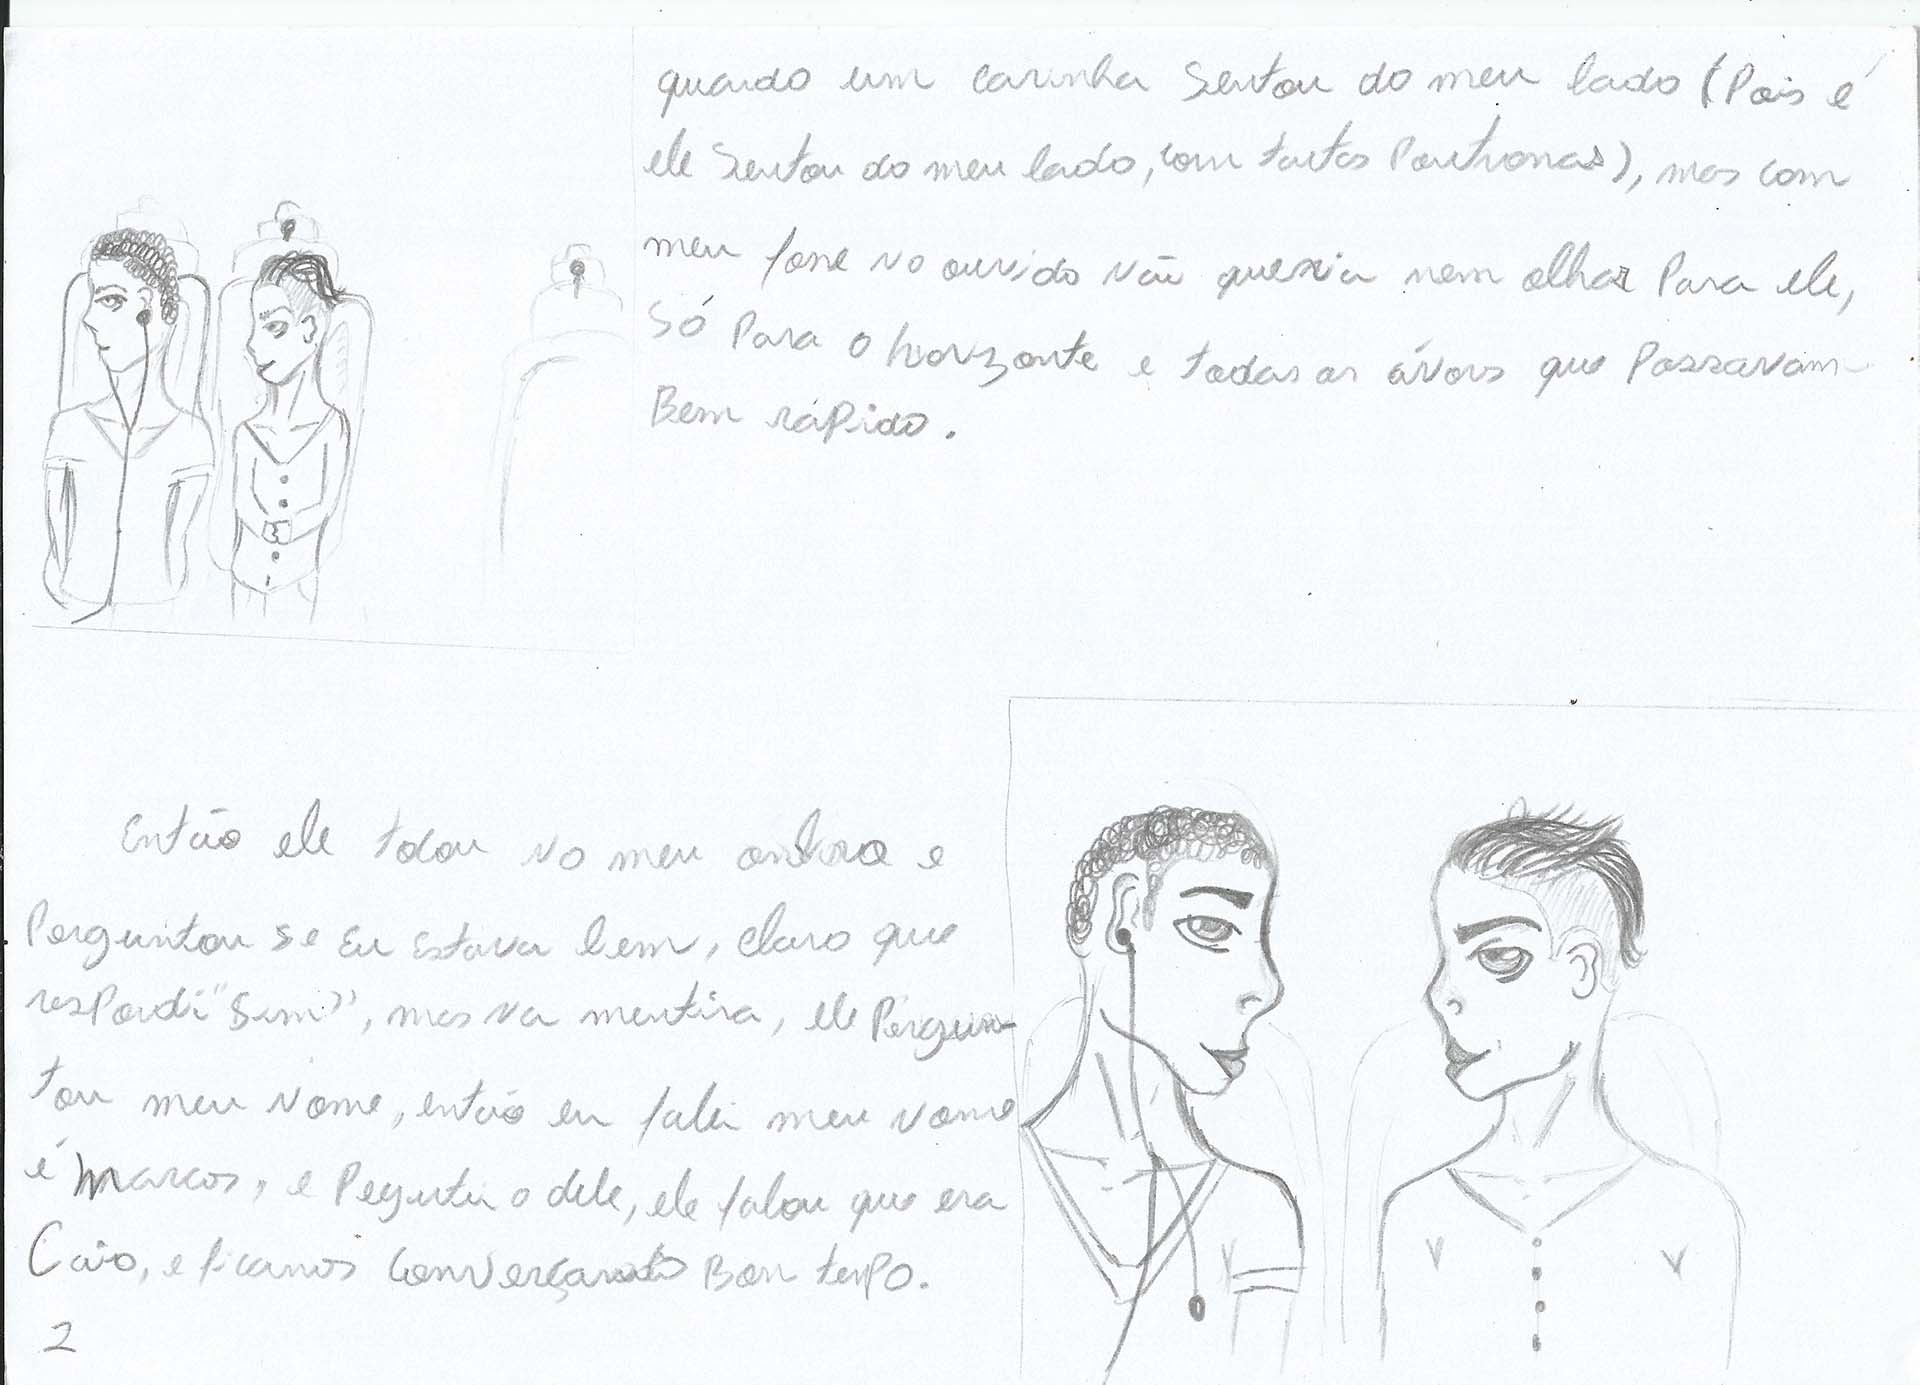 quando um carinha Sentou do meu lado (Pois é
ele Sentou do meu lado, com tantas Poutronas), mas com
meu fone no ouvido não queria nem olhar Para ele,
Só Para o horizonte e todas as ávors que Passavam
Bem rápido.
Então ele tocou no meu ombro e
Perguntou se Eu Estava bem, claro que
respondi "Sim", mas na mentira, ele Pergun-
tou meu nome, então eu falei meu nome
é Marcos, e Peguntei o dele, ele falou que era
Caio, e ficamos Converçando Bom tempo.
2